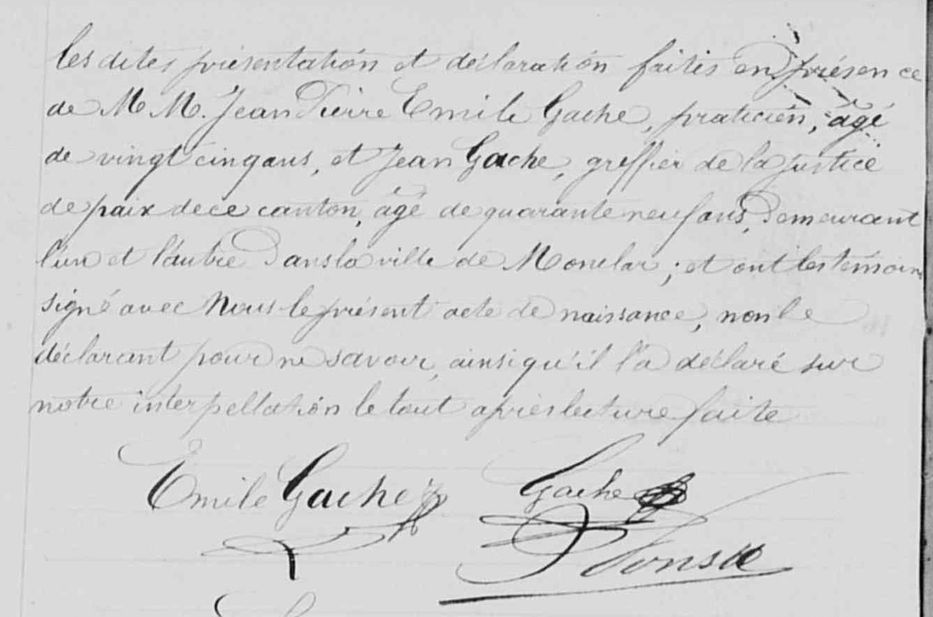 les dites présentation et déclaration faites en présence
de M M. Jean Pierre Emile Gache, praticien, âgé
de vingt cinq ans, et Jean Gache, greffier de la justice
de paix de ce canton, âgé de quarante neuf ans, demeurant
l'un et l'autre dans la ville de Monclar; et ont les témoins
signé avec Nous le présent acte de naissance, non le
déclarant pour ne savoir, ainsi qu'il l'a déclaré sur
notre interpellation le tout après lecture faite
Emile Gache Gache